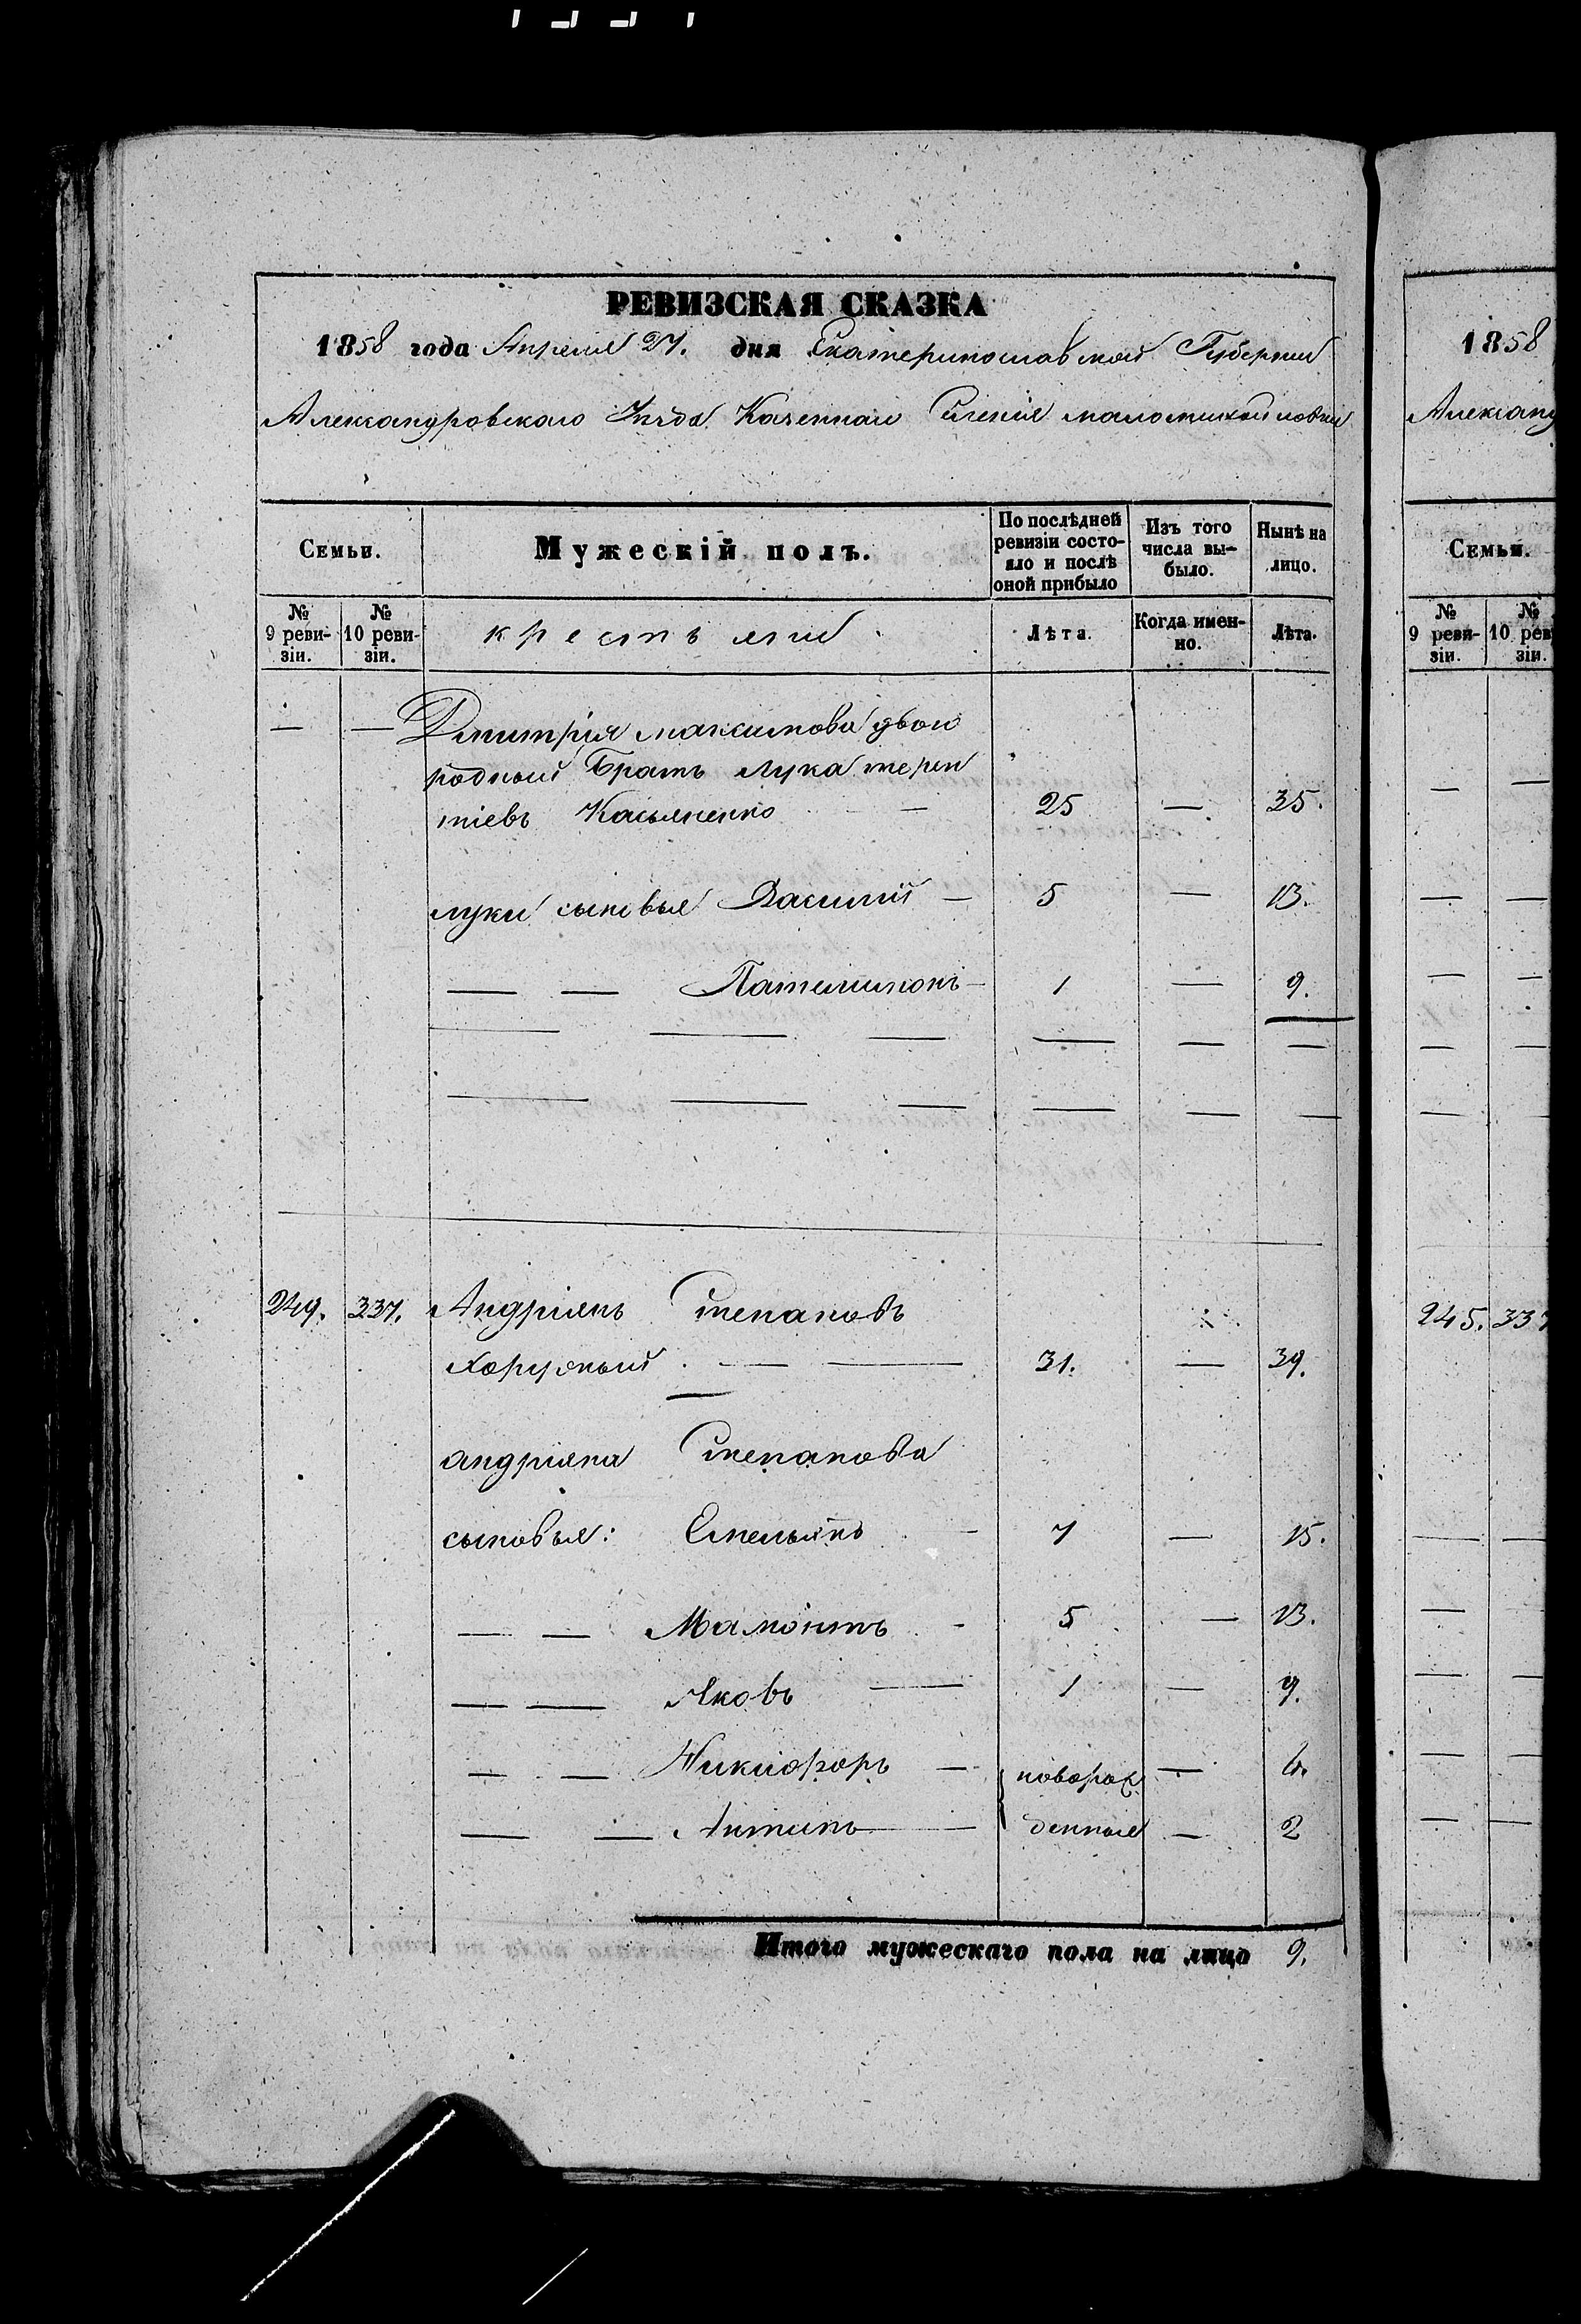 РЕВИЗСКАЯ СКАЗКА
1858 года Апреля 27. дня Екатеринославской Губернии
Александровскаго Уезда Казеннаго Селенія маломихайловки
Семьи.
Мужескій полъ.
По послѣдней ревизіи состояло и послѣ оной прибыло
Изъ того числа выбыло.
Нынѣ на лицо.
№ 9 ревизіи.
№ 10 ревизіи.
крестьяне
Лѣта.
Когда именно.
Лѣта.
— — Дмитрія максимова двою
родный Братъ Лука терен
тіевъ Касьяненко — 25 — 35.
луки сыновья Василій — 5 — 13.
— — Пателимонъ — 1 — 9.
— — — — — —
— — — — — —
249. 337. Андріянъ Степановъ
Хоружный — — 31. — 39.
андріяна Степанова
сыновья: Емельянъ — 7 — 15.
— — Мамонтъ — 5 — 13.
— — Яковъ — 1 — 9.
— — Никифоръ — новорож — 6.
— — Антипъ — денные — 2
Итого мужескаго пола на лицо 9.
1858
Александ
Семьи.
№ 9 ревизіи.
№ 10 ревзіи.
245. 337